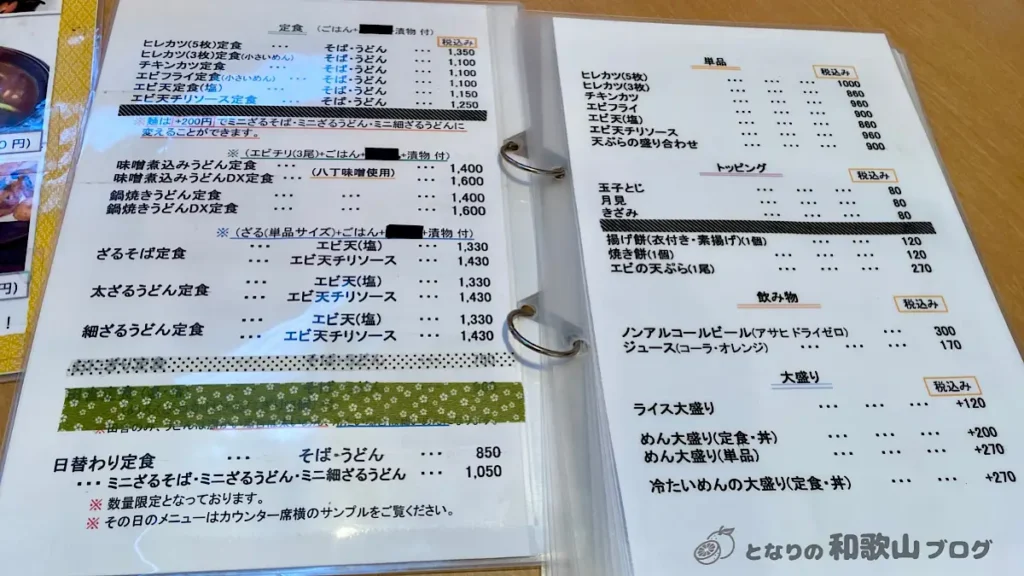 0 円)
円)
!
定食 (ごはん+ 漬物 付)
税込み
ヒレカツ(5枚)定食 ··· そば・うどん ··· 1,350
ヒレカツ(3枚)定食(小さいめん) そば・うどん ··· 1,100
チキンカツ定食 ··· そば・うどん ··· 1,100
エビフライ定食(小さいめん) ··· そば・うどん ··· 1,100
エビ天定食(塩) ··· そば・うどん ··· 1,150
エビ天チリソース定食 ··· そば・うどん ··· 1,250
※麺は +200円でミニざるそば・ミニざるうどん・ミニ細ざるうどんに
変えることができます。
※ (エビチリ(3尾)+ごはん+ +漬物 付)
味噌煮込みうどん定食 ··· (八丁味噌使用) ··· 1,400
味噌煮込みうどんDX定食 ··· 1,600
鍋焼きうどん定食 ··· ··· 1,400
鍋焼きうどんDX定食 ··· ··· 1,600
※ (ざる(単品サイズ)+ごはん+ +漬物 付)
ざるそば定食 ··· エビ天(塩) ··· 1,330
··· エビ天チリソース ··· 1,430
太ざるうどん定食 ··· エビ天(塩) ··· 1,330
··· エビ天チリソース ··· 1,430
細ざるうどん定食 ··· エビ天(塩) ··· 1,330
··· エビ天チリソース ··· 1,430
日替わり定食 ··· そば・うどん ··· 850
··· ミニざるそば・ミニざるうどん・ミニ細ざるうどん ··· 1,050
※ 数量限定となっております。
※ その日のメニューはカウンター席横のサンプルをご覧ください。
単品
税込み
ヒレカツ(5枚) ··· ··· 1000
ヒレカツ(3枚) ··· ··· 660
チキンカツ ··· ··· 960
エビフライ ··· ··· 900
エビ天(塩) ··· ··· 860
エビ天チリソース ··· ··· 960
天ぷらの盛り合わせ ··· ··· 900
トッピング
税込み
玉子とじ ··· ··· 80
月見 ··· ··· 80
きざみ ··· ··· 80
揚げ餅(衣付き・素揚げ)(1個) ··· ··· 120
焼き餅(1個) ··· ··· ··· 120
エビの天ぷら(1尾) ··· ··· 270
飲み物
税込み
ノンアルコールビール(アサヒ ドライゼロ) ··· 300
ジュース(コーラ・オレンジ) ··· ··· 170
大盛り
税込み
ライス大盛り ··· ··· ··· +120
めん大盛り(定食・丼) ··· ··· ··· +200
めん大盛り(単品) ··· ··· ··· +270
冷たいめんの大盛り(定食・丼) ··· ··· +270
となりの和歌山ブログ